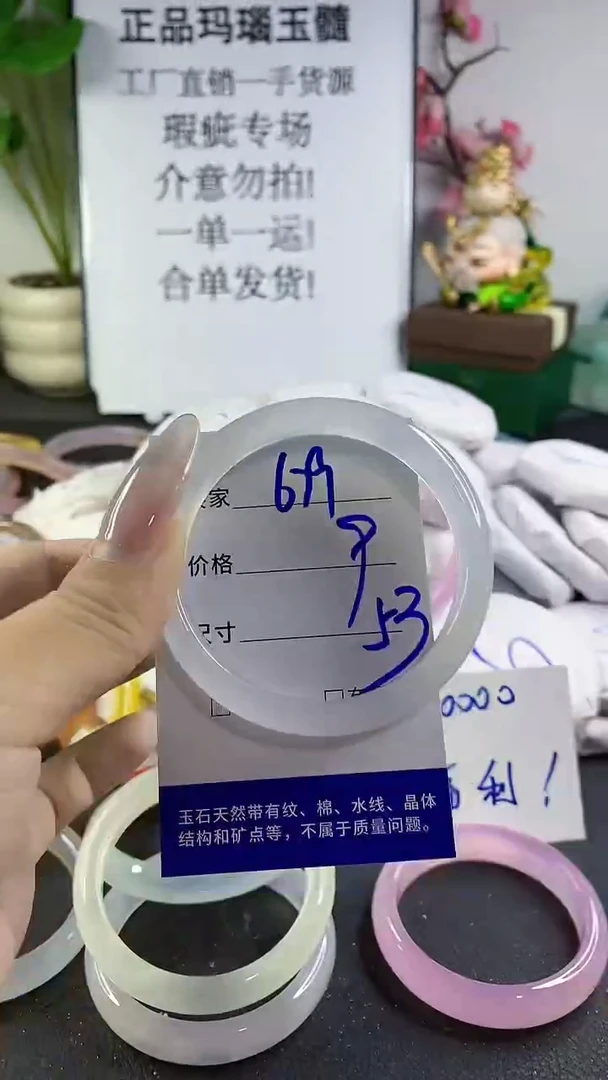 正品玛瑙玉髓
工厂直销一手货源
瑕疵专场
介意勿拍!
一单一运!
合单发货!
家
价格
尺寸
53
0000
利!
玉石天然带有纹、棉、水线、晶体
结构和矿点等，不属于质量问题。